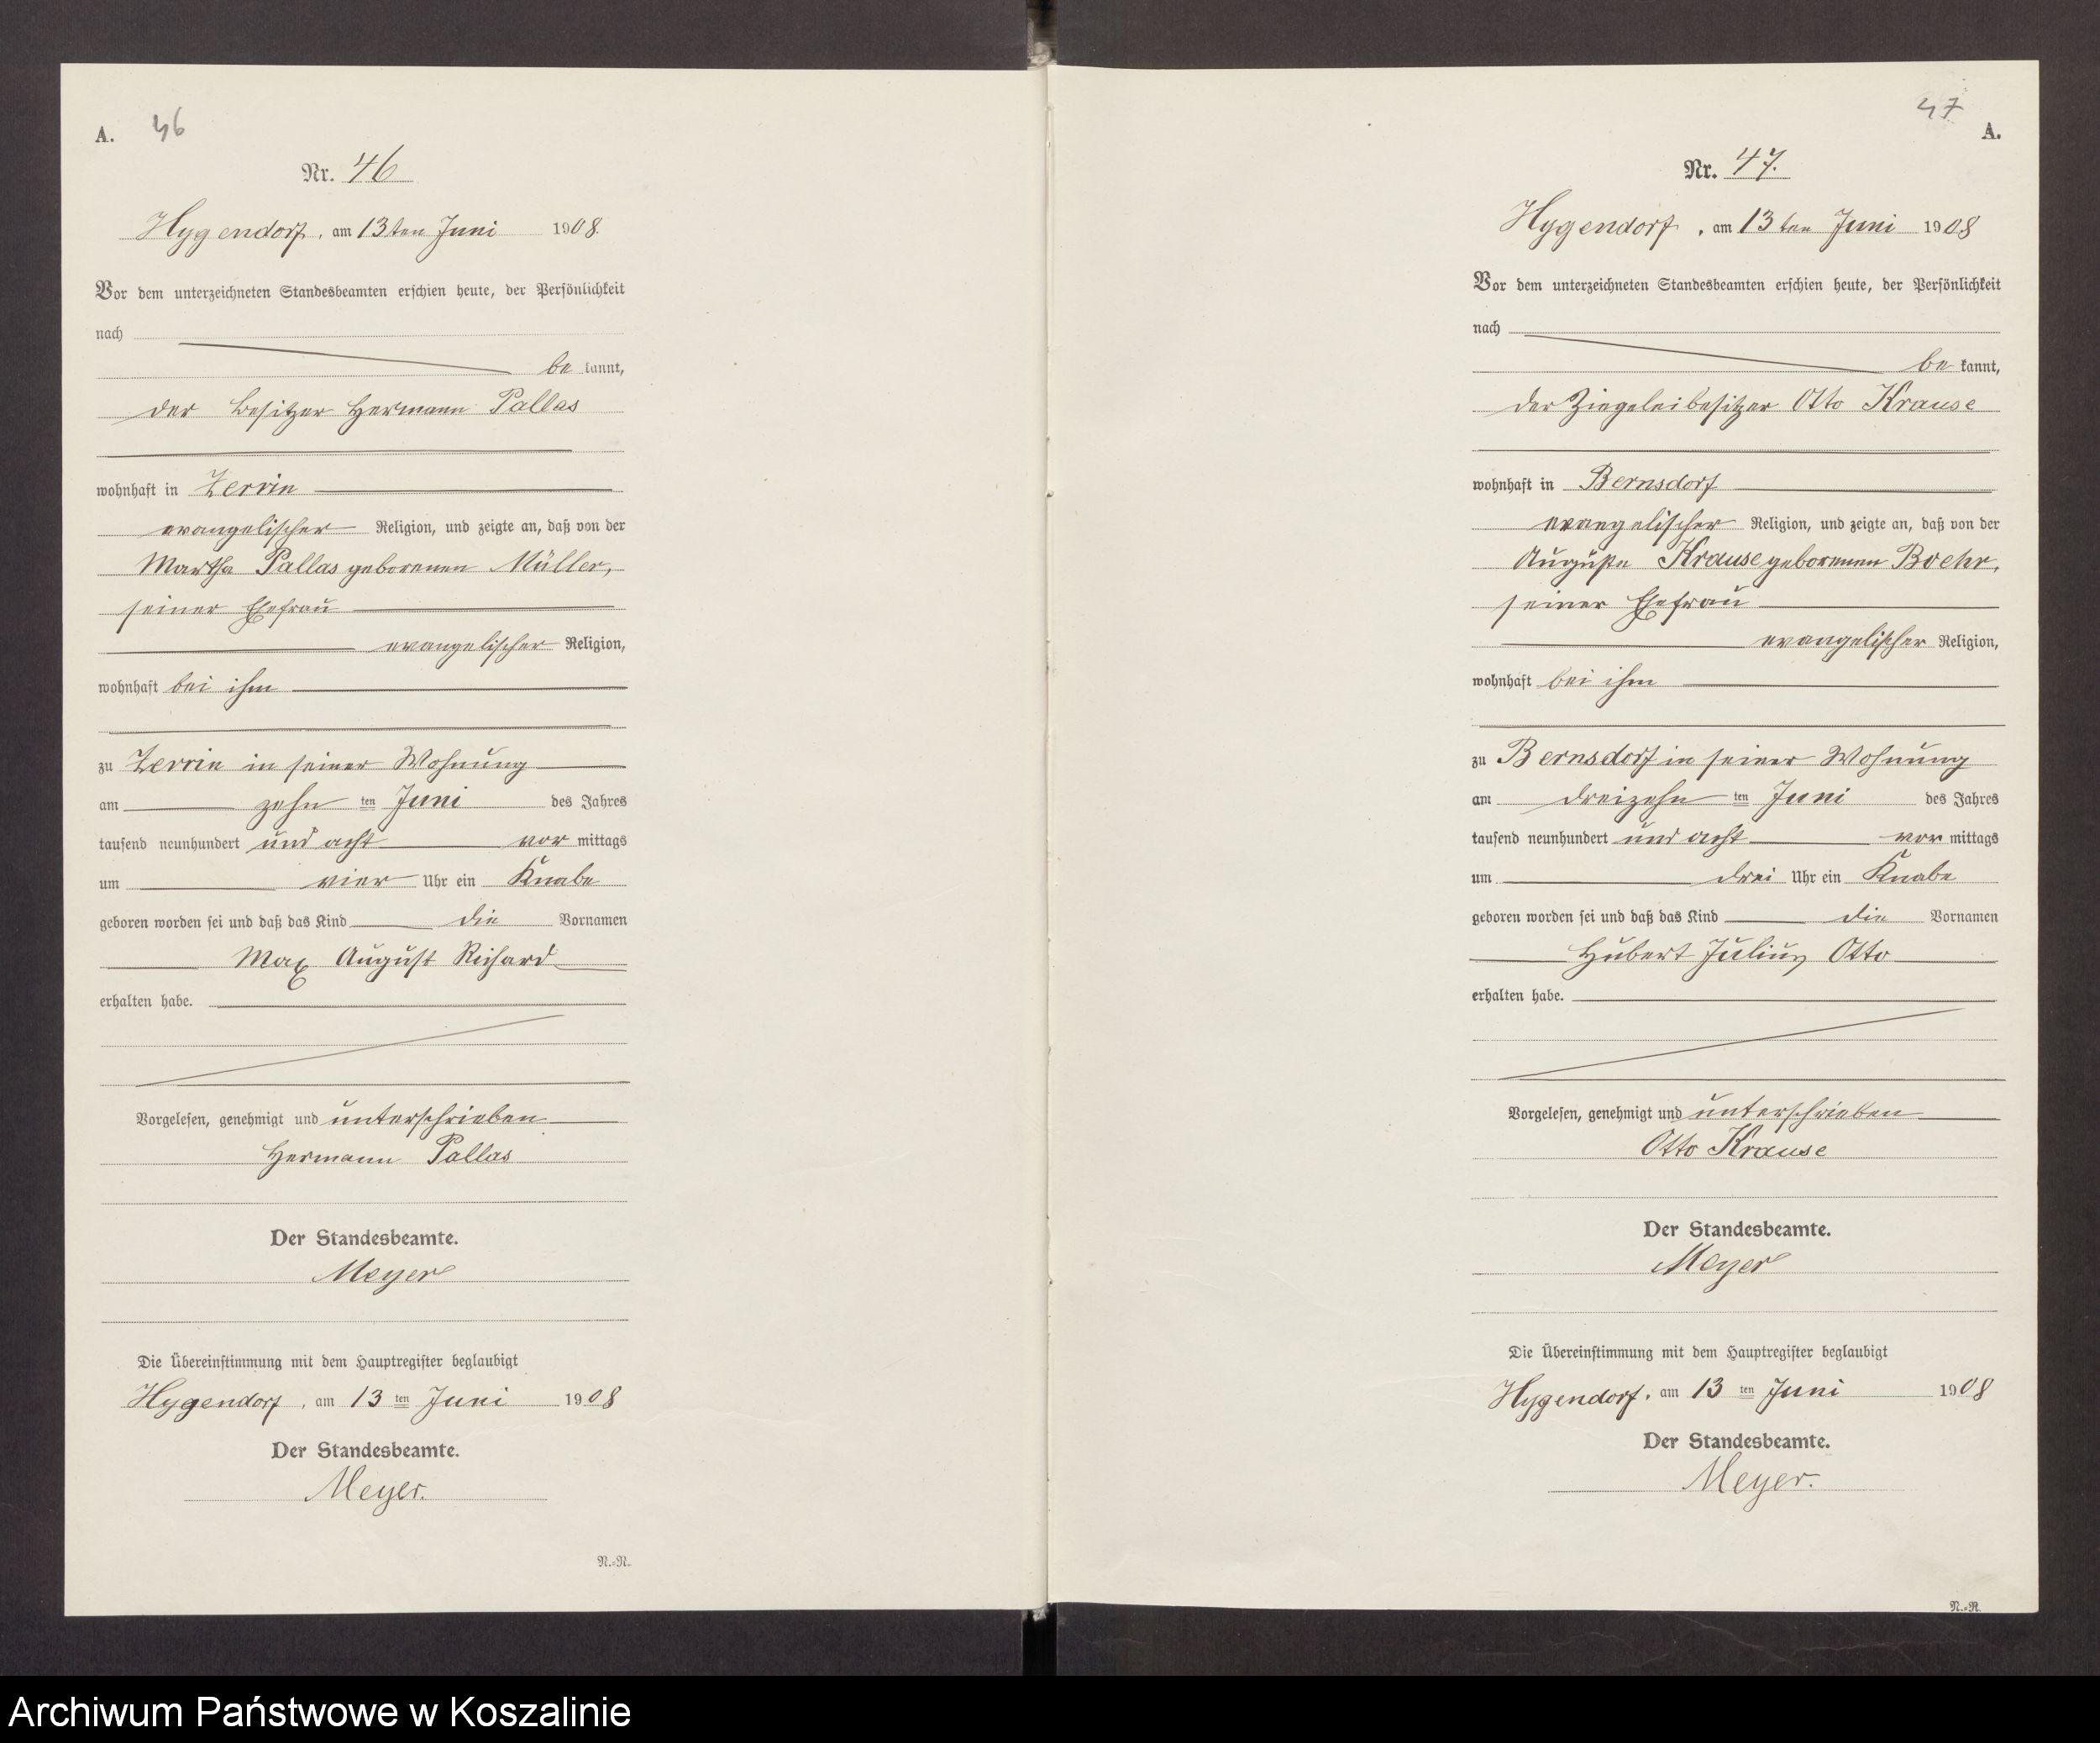 A. 46
Nr. 46
Hygendorf, am 13ten Juni 1908.
Vor dem unterzeichneten Standesbeamten erschien heute, der Persönlichkeit
nach
be kannt,
der Besitzer Hermann Pallas
wohnhaft in Zerrin
evangelischer Religion, und zeigte an, daß von der
Martha Pallas geborenen Müller,
seiner Ehefrau
evangelischer Religion,
wohnhaft bei ihm
zu Zerrin in seiner Wohnung
am zehn ten Juni des Jahres
tausend neunhundert und acht vor mittags
um vier Uhr ein Knabe
geboren worden sei und daß das Kind die Vornamen
Max August Richard
erhalten habe.
Vorgelesen, genehmigt und unterschrieben
Hermann Pallas
Der Standesbeamte.
Meyer
Die Übereinstimmung mit dem Hauptregister beglaubigt
Hygendorf, am 13 ten Juni 1908
Der Standesbeamte.
Meyer.
N.-N.
47
A.
Nr. 47.
Hygendorf, am 13ten Juni 1908
Vor dem unterzeichneten Standesbeamten erschien heute, der Persönlichkeit
nach
be kannt,
der Ziegeleibesitzer Otto Krause
wohnhaft in Bernsdorf
evangelischer Religion, und zeigte an, daß von der
Auguste Krause geborenen Boehr,
seiner Ehefrau
evangelischer Religion,
wohnhaft bei ihm
zu Bernsdorf in seiner Wohnung
am dreizehn ten Juni des Jahres
tausend neunhundert und acht vor mittags
um drei Uhr ein Knabe
geboren worden sei und daß das Kind die Vornamen
Hubert Julius Otto
erhalten habe.
Vorgelesen, genehmigt und unterschrieben
Otto Krause
Der Standesbeamte.
Meyer
Die Übereinstimmung mit dem Hauptregister beglaubigt
Hygendorf, am 13 ten Juni 1908
Der Standesbeamte.
Meyer.
N.-N.
Archiwum Państwowe w Koszalinie